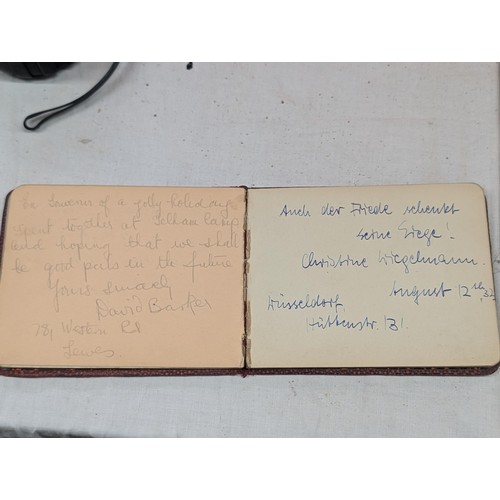 Souvenir of a jolly holiday
spent together at Telham camp
and hoping that we shall
be good pals in the future
Yours
David Barker
Western Rd
Lewes.
Auch der Friede schenkt
seine Siege!
Christine Wiegelmann.
August 12th, 32
Düsseldorf,
Hüttenstr. 131.